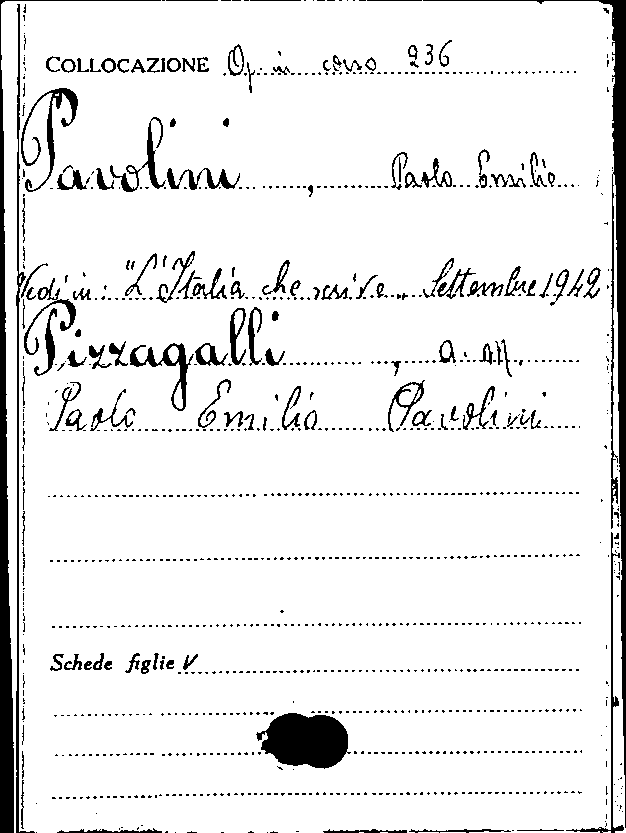 COLLOCAZIONE Op. in corso 236
Pavolini, Paolo Emilio
Vedi in: "L'Italia che scrive„ Settembre 1942
Pizzagalli, A. M.
Paolo Emilio Pavolini
Schede figlie V